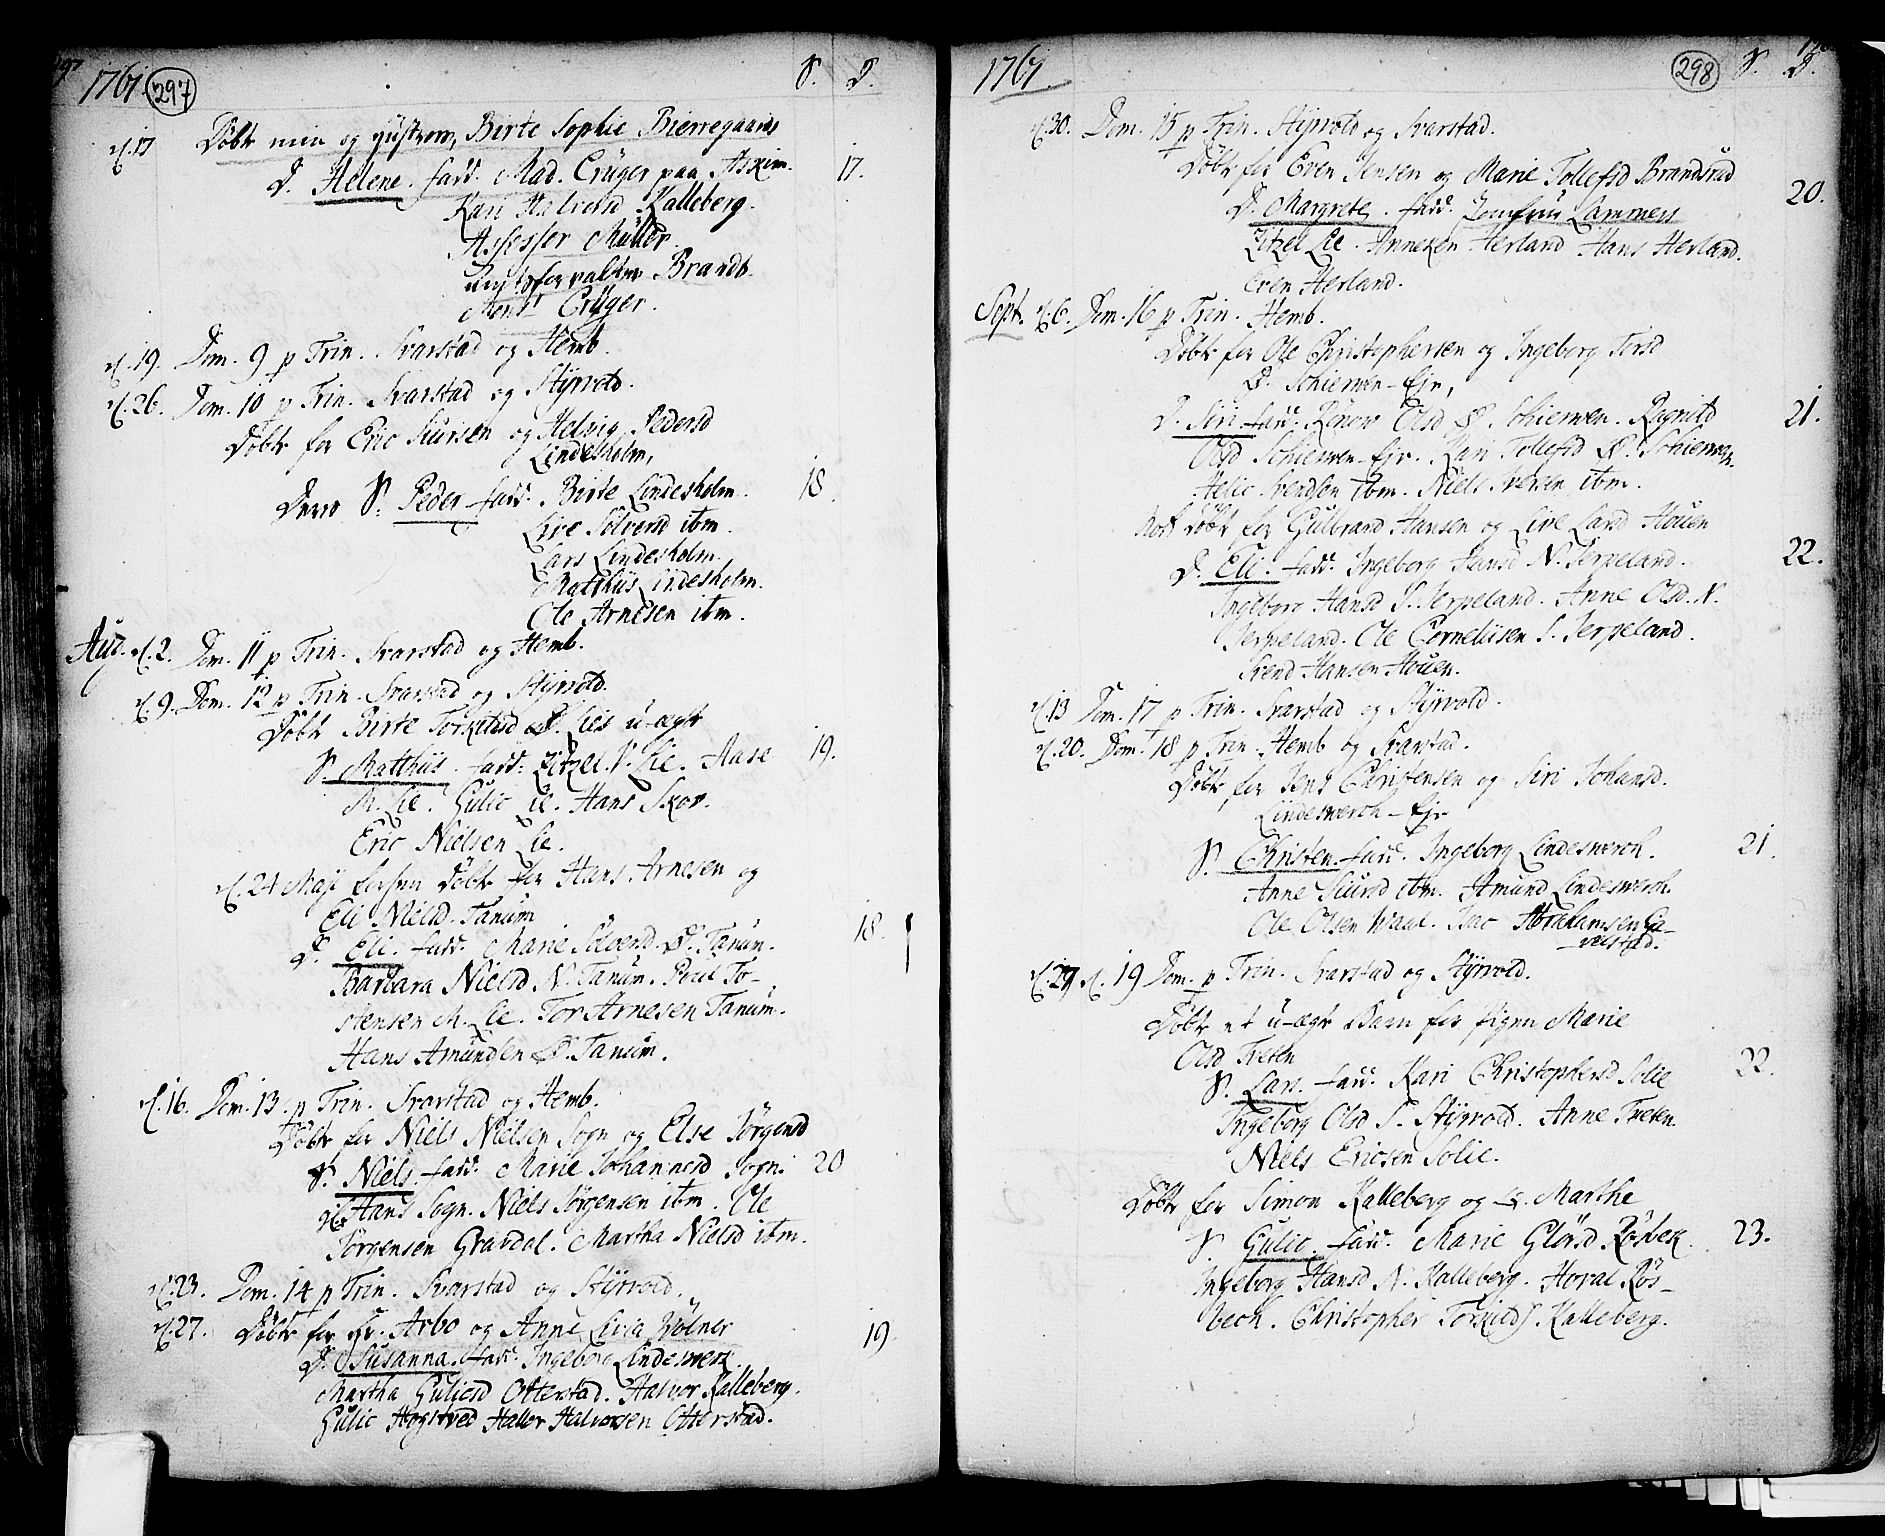 1767. 297 S. D.
d. 17 Döbt min og Hustrues, Birte Sophie Bierregaards
D. Helene. fadd. Mad. Crüger paa Askim. 17.
Kari Halvorsd Kalleberg.
Assessor Müller.
Brandt.
Mons. Crüger.
d. 19. Dom. 9 p Trin. Svarstad og Hemb.
d. 26. Dom. 10 p Trin. Svarstad og Styrvold.
Döbt for Eric Siursen og Helvig Pedersd
Lindesholm,
Deres S. Peder fadd. Birte Lindesholm. 18.
Live Solversd ibm.
Lars Lindesholm.
Matthiis Lindesholm.
Ole Arnesen ibm.
Aug. d. 2. Dom. 11 p Trin. Svarstad og Hemb.
d. 9. Dom. 12 p Trin. Svarstad og Styrvold.
Döbt Birte Torkilsd Lies u-ægte
S. Matthiis. fadd: Zitzel N. Lie. Aase 19.
M. Lie. Gulic Lie. Hans Skov.
Eric Nielsen Lie.
d. 24 Maji Döbt for Hans Arnesen og
Eli Nielsd. Tanum
D. Eli. fadd. Marie Solversd Ø. Tanum. 18.
Barbara Nielsd N. Tanum. Poul To-
stensen M. Lie. Tor Arnesen Tanum.
Hans Amundsen Ø. Tanum.
d. 16. Dom. 13. p Trin. Svarstad og Hemb.
Döbt for Niels Nielsen Sogn og Else Jörgensd
S. Niels. fadd. Marie Johannesd Sogn. 20
Hans Sogn. Niels Jörgensen ibm. Ole
Jörgensen Gravdal. Martha Nielsd ibm.
d. 23. Dom. 14 p Trin. Svarstad og Styrvold.
d. 27. Döbt for Hr. Arbo og Anne Livia Wölner
D. Susanna. fadd. Ingeborg Lindeswerk. 19
Martha Guliesd Otterstad. Halvor Kalleberg.
Gulic Hogstved Halvorsen Otterstad.
1767. 298 S. D.
d. 30. Dom. 15 p Trin. Styrvold og Svarstad.
Döbt for Even Jensen og Marie Tollefsd Brandsrud
D. Margrete. fadd. Jomfrue Lammers 20.
Zitzel Lie. Anneken Herland Hans Herland.
Even Herland.
Sept. d. 6. Dom. 16 p Trin. Hemb.
Döbt for Ole Christophersen og Ingeborg Torsd
Ø. Schierven-Eje,
D. Siri fadd. Olsd Ø. Schierven. Ragnild 21.
Olsd Schierven-Eje. Kari Tollefsd Ø. Schierven.
Helic Svendsen ibm. Niels Iversen ibm.
Döbt for Gulbrand Hansen og Live Larsd Houen
D. Eli. fadd. Ingeborg Hansd N. Jerpeland. 22.
Ingeborg Hansd S. Jerpeland. Anne Olsd. N.
Jerpeland. Ole Corneliisen S. Jerpeland.
Svend Hansen Houen.
d. 13 Dom. 17 p Trin. Svarstad og Styrvold.
d. 20. Dom. 18 p Trin. Hemb og Svarstad.
Döbt for Jens Christensen og Siri Johansd.
Lindeswerch-Eje
S. Christen. fadd. Ingeborg Lindeswerch. 21.
Anne Siursd ibm. Amund Lindeswerch.
Ole Olsen Waal. Isac Abrahamsen Ga-
velstad.
d. 27 d. 19 Dom. p Trin. Svarstad og Styrvold.
Döbt et u-ægte Barn for Pigen Marie
Olsd Tveten
S. Lars. fadd. Kari Christophersd Solie 22.
Ingeborg Olsd S. Styrvold. Anne Tveten.
Niels Ericsen Solie.
Döbt for Simon Kalleberg og Marthe
S. Gulic. fadd. Marie Glörsd Rösbek 23.
Ingeborg Hansd N. Kalleberg. Horal Rös-
bech. Christopher Torkilds. Kalleberg.